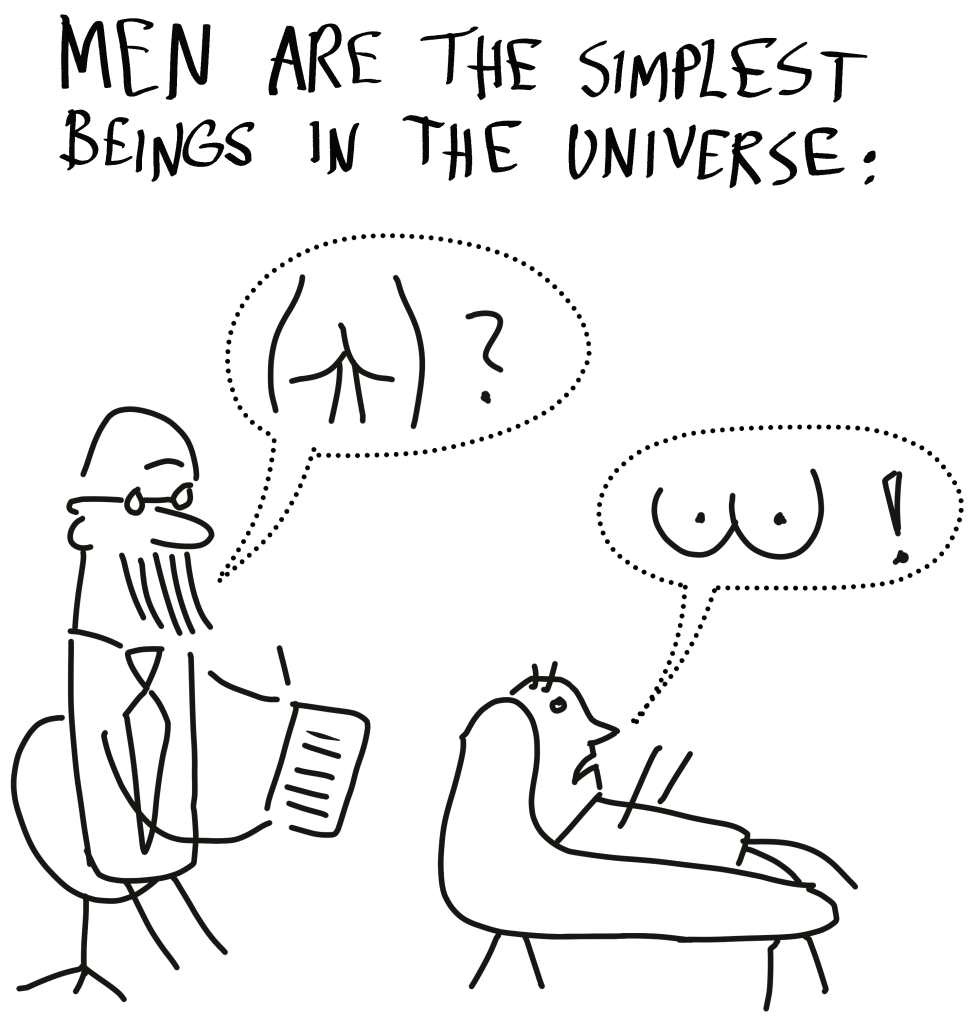 MEN ARE THE SIMPLEST
BEINGS IN THE UNIVERSE:
?
!